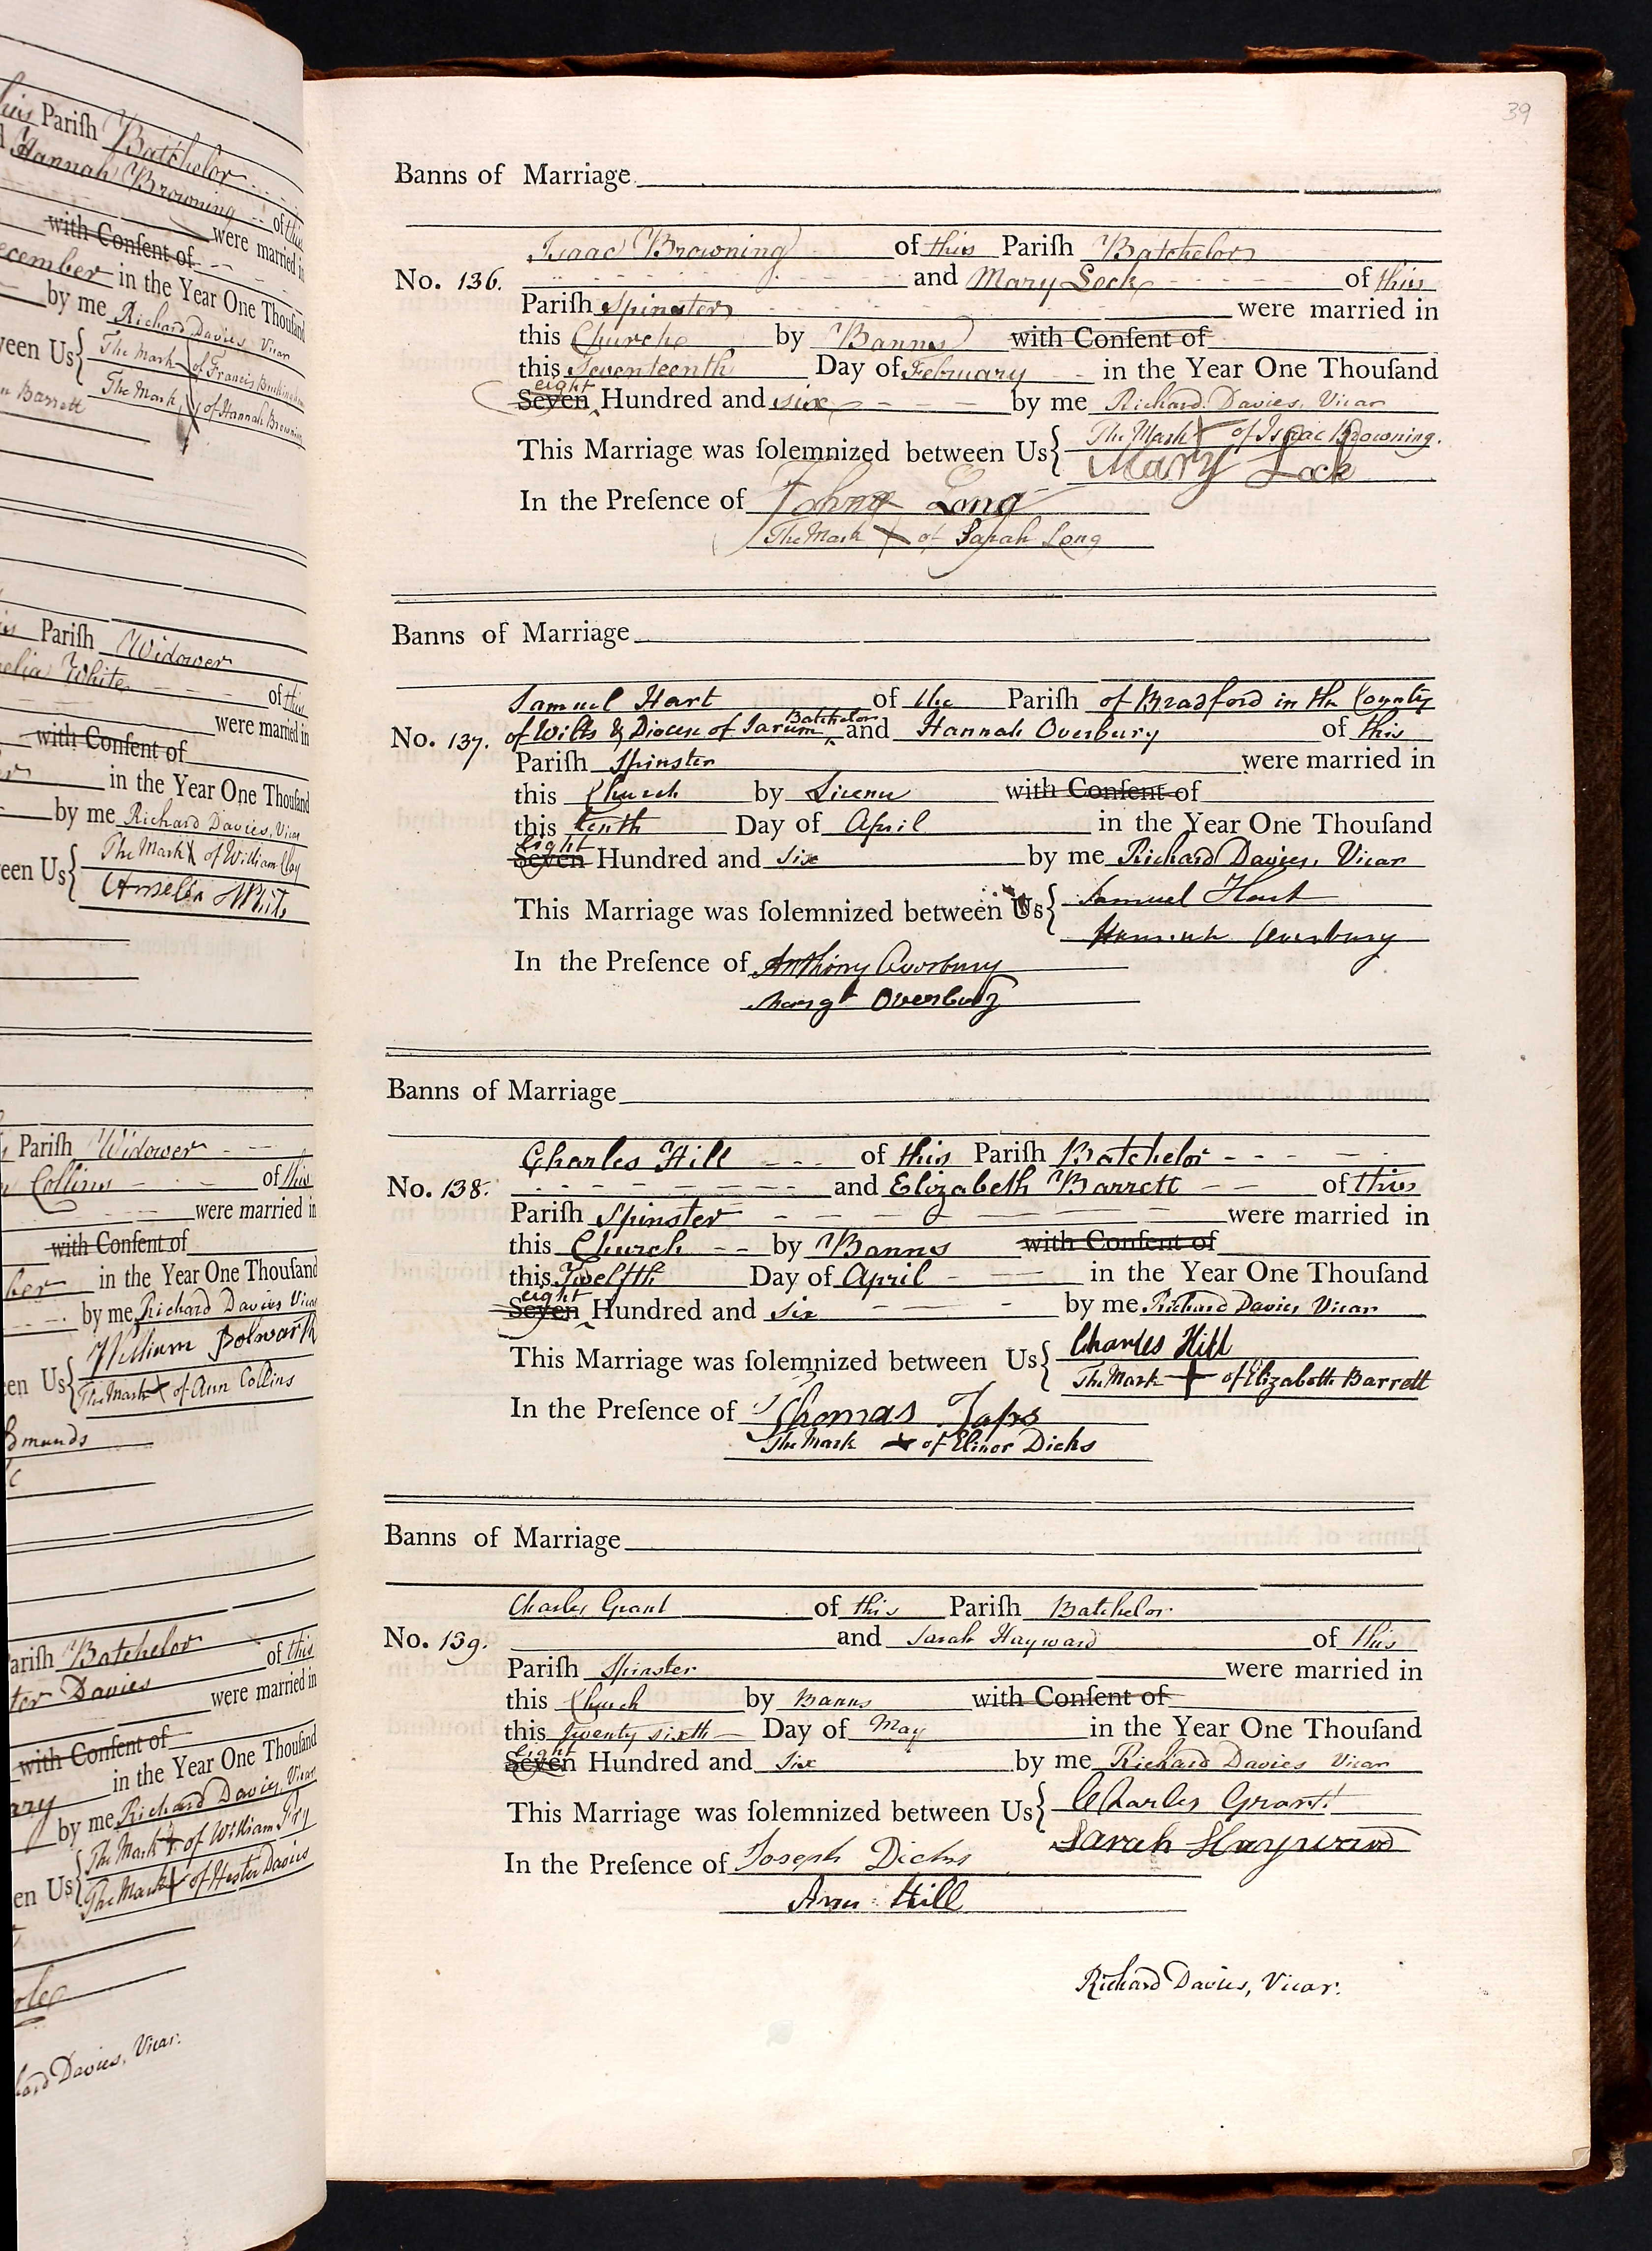 ius Parish Batchelor
d Hannah Browning of this
were married in
with Consent of
ecember in the Year One Thousand
by me Richard Davies Vicar
ween Us The Mark of Francis
The Mark of Hannah Browning
Barrett
is Parish Widower
elia White of this
were married in
with Consent of
in the Year One Thousand
by me Richard Davies, Vicar
een Us The Mark X of William Clay
Amelia White
Parish Widower
Collins of this
were married in
with Consent of
ber in the Year One Thousand
by me Richard Davies Vicar
een Us William Bolwarth
The Mark of Ann Collins
dmunds
arish Batchelor of this
ter Davies
were married in
with Consent of
ary in the Year One Thousand
by me Richard Davies, Vicar
en Us The Mark + of William Pry
The Mark + of Hester Davies
ard Davies, Vicar.
39
Banns of Marriage
Isaac Browning of this Parish Batchelor
No. 136. and Mary Lock of this
Parish Spinster were married in
this Church by Banns with Consent of
this Seventeenth Day of February in the Year One Thousand
eight
Seven Hundred and six by me Richard Davies, Vicar
This Marriage was solemnized between Us The Mark X of Isaac Browning.
Mary Lock
In the Presence of Long
The Mark X of Sarah Long
Banns of Marriage
Samuel Hart of the Parish of Bradford in the County
No. 137. of Wilts & Diocese of Sarum Batchelor and Hannah Overbury of this
Parish Spinster were married in
this Church by Licence with Consent of
this tenth Day of April in the Year One Thousand
eight
Seven Hundred and six by me Richard Davies, Vicar
This Marriage was solemnized between Us Samuel Hart
Hannah Overbury
In the Presence of Anthony Overbury
Margt Overbury
Banns of Marriage
Charles Hill of this Parish Batchelor
No. 138. and Elizabeth Barrett of this
Parish Spinster were married in
this Church by Banns with Consent of
this Twelfth Day of April in the Year One Thousand
eight
Seven Hundred and six by me Richard Davies Vicar
This Marriage was solemnized between Us Charles Hill
The Mark + of Elizabeth Barrett
In the Presence of Thomas Taps
The Mark + of Elinor Dicks
Banns of Marriage
Charles Grant of this Parish Batchelor
No. 139. and Sarah Hayward of this
Parish Spinster were married in
this Church by Banns with Consent of
this twenty sixth Day of May in the Year One Thousand
Eight
Seven Hundred and six by me Richard Davies Vicar
This Marriage was solemnized between Us Charles Grant
Sarah Hayward
In the Presence of Joseph Dicks
Ann Hill
Richard Davies, Vicar.